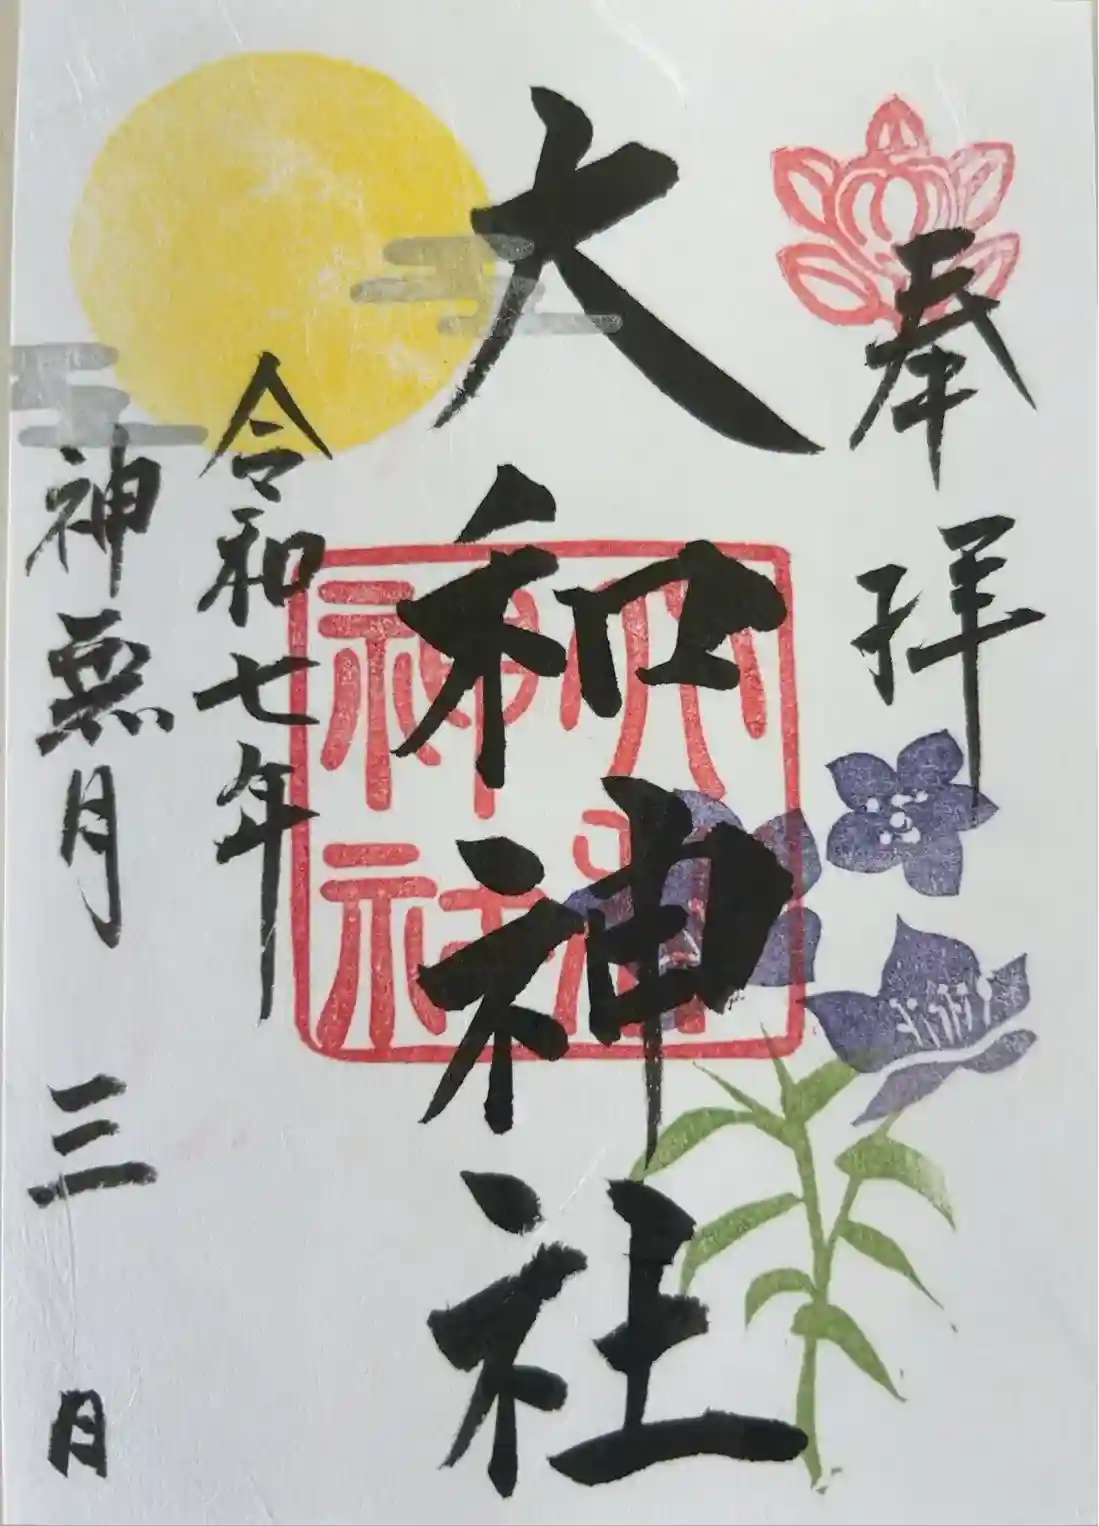 奉拝
大和神社
大和神社
令和七年
神無月三日